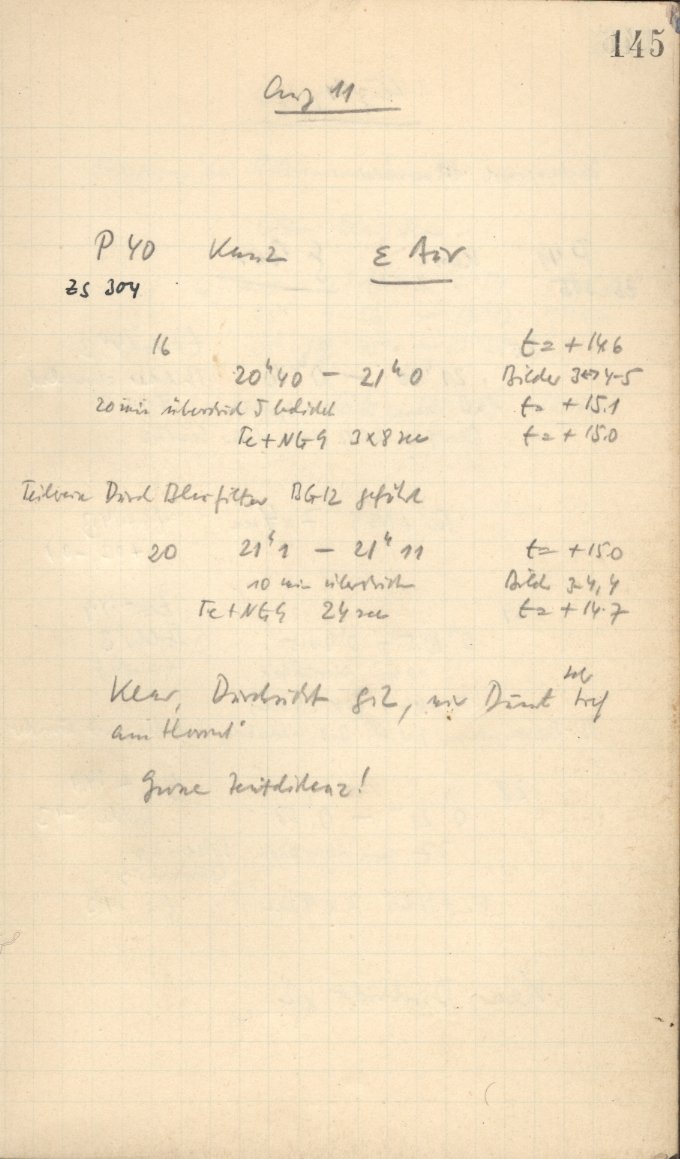 145
Aug 11
P 40 Kunz ε Aur
ZS 304
16 t= +14.6
20h40 – 21h0 Bilder 3↔4-5
20 min überstrich t= +15.1
Te+NG9 3x8 sec t= +15.0
Teilweise Durch Blaufilter BG12 geführt
20 21h1 – 21h11 t= +15.0
10 min überstrich Bilder 3-4, 4
Te+NG9 24 sec t= +14.7
sehr
Klar, Durchsicht gut, nur Dunst tief
am Horizont
Grosse Zenitdistanz!